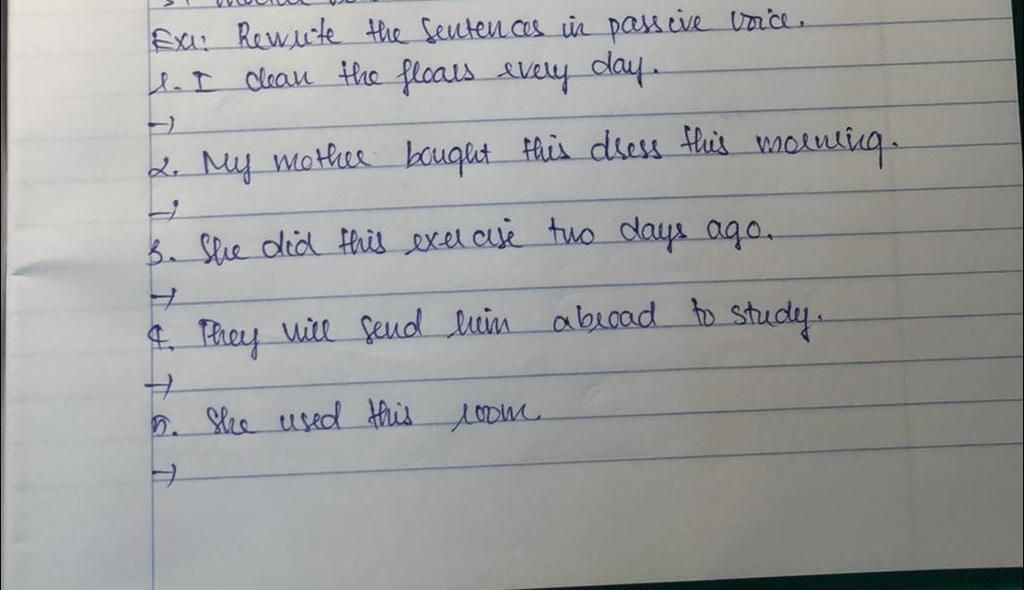 Ex1: Rewrite the sentences in passive voice.
1. I clean the floors every day.
→
2. My mother bought this dress this morning.
→
3. She did this exercise two days ago.
→
4. They will send him abroad to study.
→
5. She used this room.
→